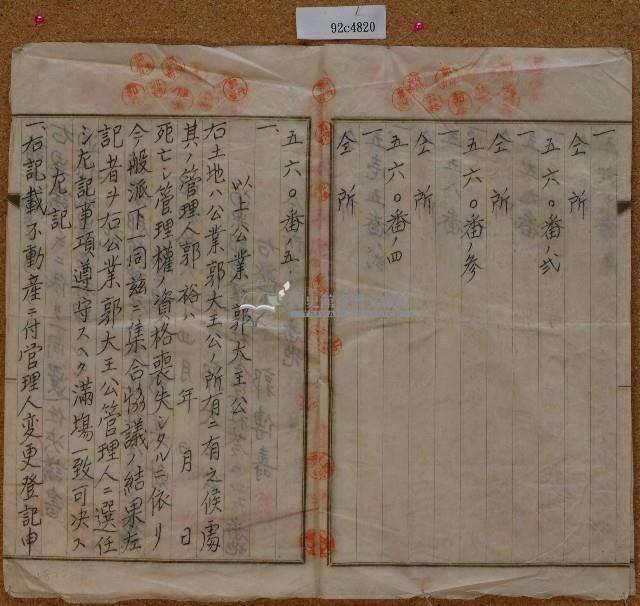 92c4820
一、
仝所
五六〇番ノ弐
一、
仝所
五六〇番ノ参
一、
仝所
五六〇番ノ四
一、
仝所
五六〇番ノ五
一、
以上公業 郭大王公
右土地ハ公業郭大王公ノ所有ニ有之候處
其ノ管理人郭 裕ハ 年 月 日
死亡シ管理權ノ資格喪失シタルニ依リ
今般派下一同茲ニ集合協議ノ結果左
記者ヲ右公業郭大王公管理人ニ選任
シ左記事項遵守スヘク滿場一致可決ス
左記
一、右記載不動産ニ付管理人変更登記申